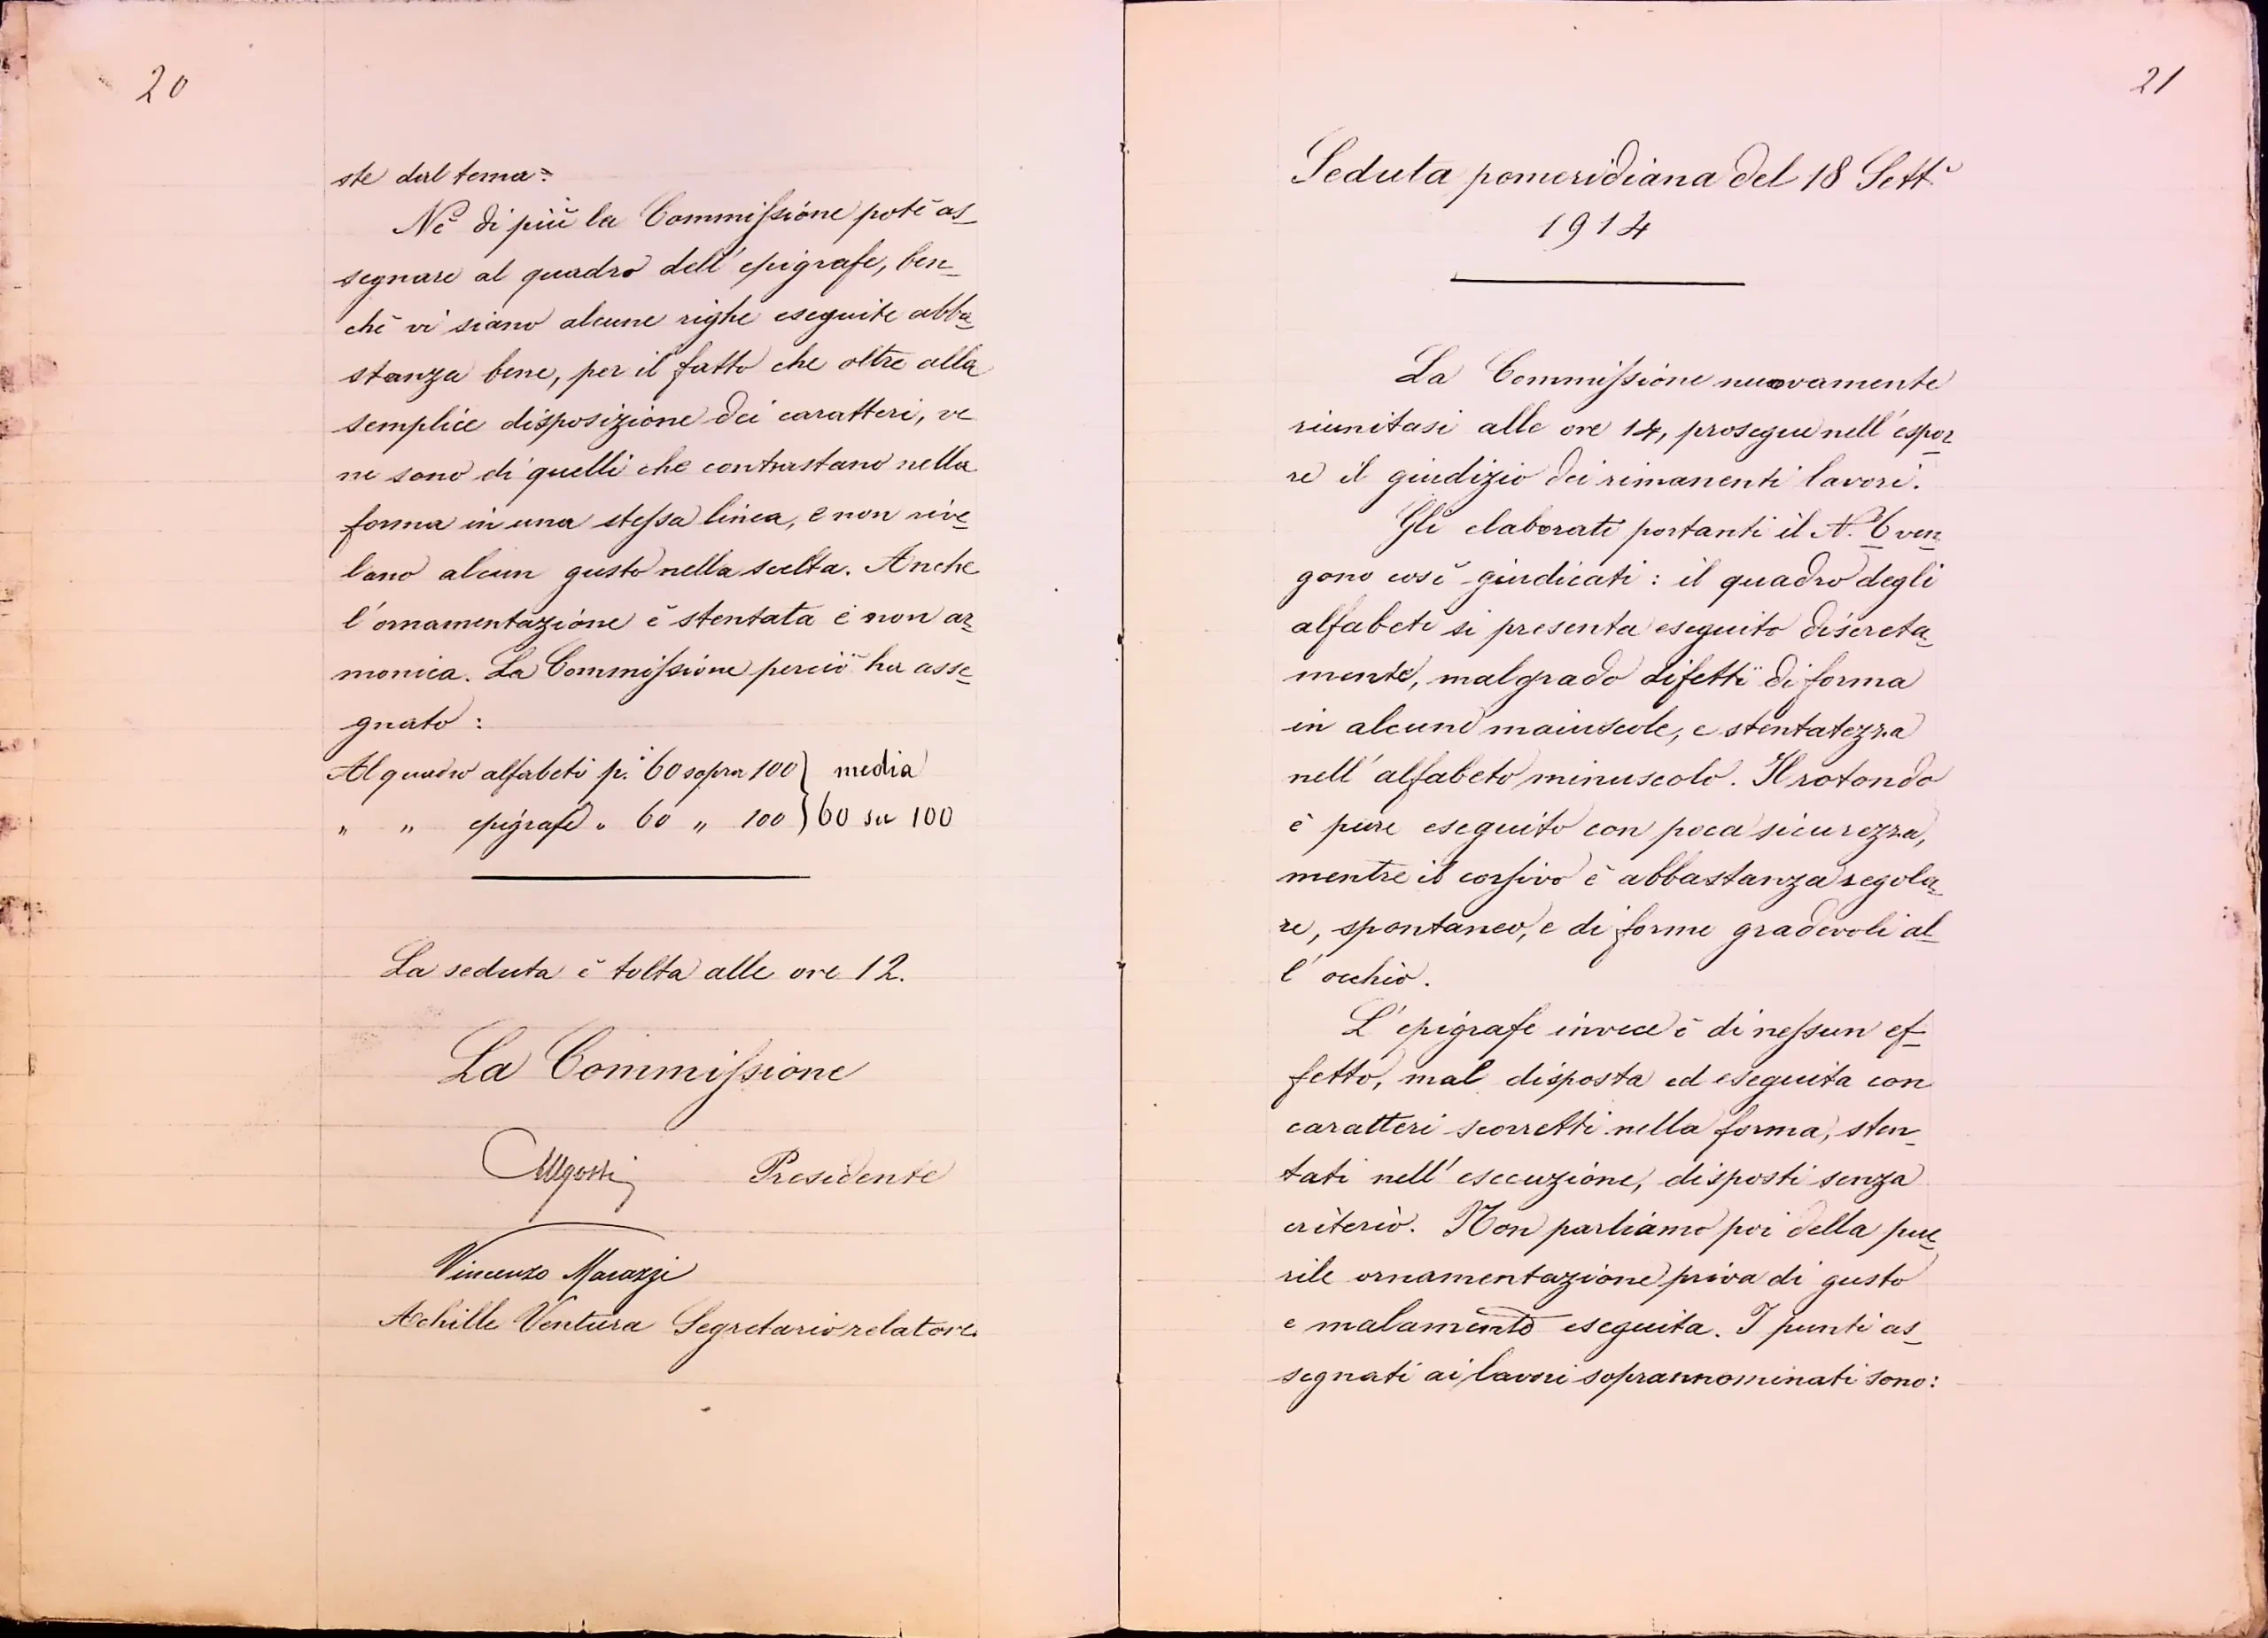 20
ste dal tema.
Nè di più la Commissione potè as_
segnare al quadro dell'epigrafe, ben_
chè vi siano alcune righe eseguite abba_
stanza bene, per il fatto che oltre alla
semplice disposizione dei caratteri, ve
ne sono di quelli che contrastano nella
forma in una stessa linea, e non rive_
lano alcun gusto nella scelta. Anche
l'ornamentazione è stentata e non ar_
monica. La Commissione perciò ha asse_
gnato:
Al quadro alfabeti p.i 60 sopra 100 } media
" " epigrafe " 60 " 100 } 60 su 100
La seduta è tolta alle ore 12.
La Commissione
Presidente
Vincenzo Marazzi
Achille Ventura Segretario relatore.
21
Seduta pomeridiana del 18 Sett.e
1914
La Commissione nuovamente
riunitasi alle ore 14, prosegue nell'espor_
re il giudizio dei rimanenti lavori.
Gli elaborati portanti il N. 6 ven_
gono così giudicati: il quadro degli
alfabeti si presenta eseguito discreta_
mente, malgrado difetti di forma
in alcune maiuscole, e stentatezza
nell'alfabeto minuscolo. Il rotondo
è pure eseguito con poca sicurezza,
mentre il corsivo è abbastanza regola_
re, spontaneo, e di forme gradevoli al_
l'occhio.
L'epigrafe invece è di nessun ef_
fetto, mal disposta ed eseguita con
caratteri scorretti nella forma, sten_
tati nell'esecuzione, disposti senza
criterio. Non parliamo poi della pue_
rile ornamentazione priva di gusto
e malamente eseguita. I punti as_
segnati ai lavori soprannominati sono: